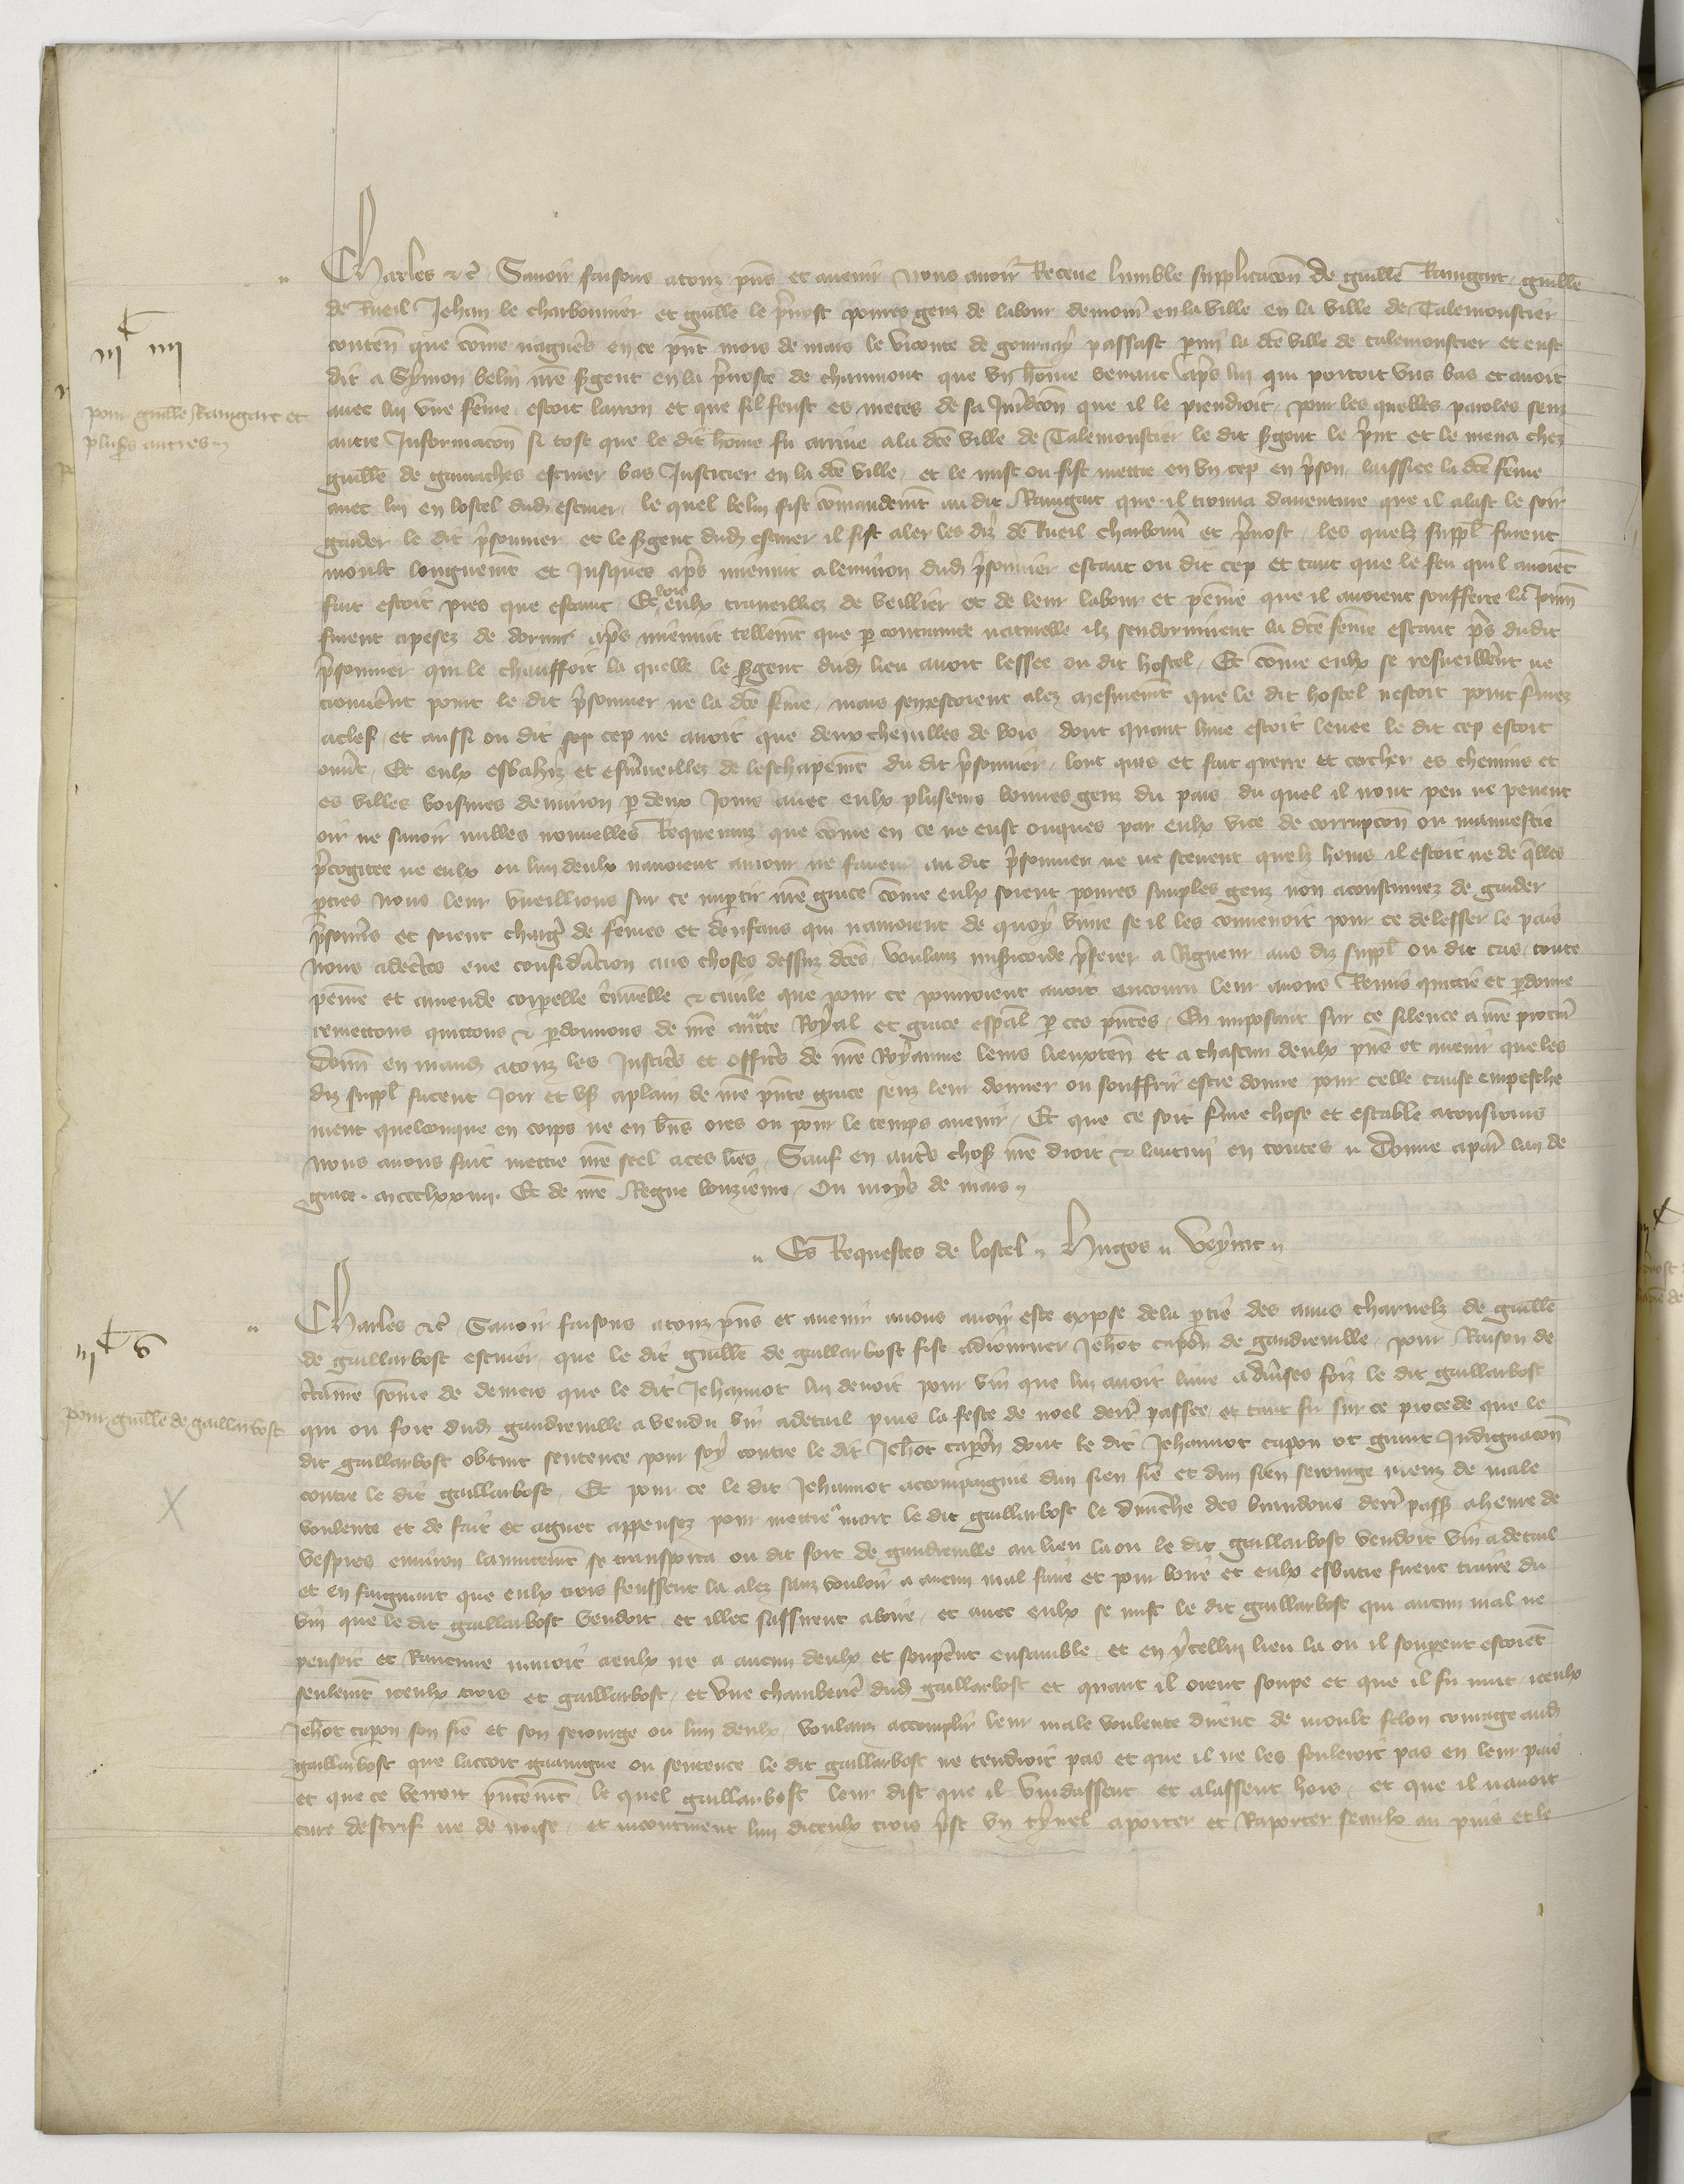 Charles etc̃ Savoir faisons a touz pñs et avenir nous avoir Receue lumble supplicacõn de guille Raingart guille
de Rueil Jehan le charbonnier et guille le p̃vost povres genz de labour demour̃ en la ville en la ville de Talemonstier
conteñ que cõme nagueres en ce pñt mois de mars le viconte de gournay passast parmi la dc̃e ville de talemonstier et eust
dit a Symon belin nr̃e sgent en la p̃voste de chaumont que un hõme venant ap̃s lui qui portoit uns bas et avoit
avec lui une fẽme estoit larron et que sil feust es metes de sa Juridcõn que il le prendroit pour les quelles paroles senz
autre Informacõn si tost que le dit hõme fu arrive a la dc̃e ville de Talemonstier le dit sgent le p̃nt et le mena chez
guille de gamaches escuier bas Justicier en la dc̃e ville et le mist ou fist mettre en un cep en p̃son laissiee la dc̃e fẽme
avec lui en lostel dud escuier le quel belin fist cõmandemt au dit Raingart que il trouva daventure que il alast le soir
garder le dit p̃sonnier et le sgent dud escuier il fist aler les diz de Rueil charbonñ et p̃vost les quelz suppl̃ furent
moult longuemt et Jusques ap̃s mienuit a lenviron dud p̃sonnier estant ou dit cep et tant que le feu quil avoiẽt
fait estoit pres que estaint Et lors eulx traveilliez de veillier et de leur labour et peine que il avoient soufferte la Journ̄
furent apesez de dormir ap̃s mienuit tellemt que p contrainte naturelle ilz sendormirent la dc̃e fẽme estant p̃s dudit
p̃sonnier qui le chauffoit la quelle le sgent dud lieu avoit lessee ou dit hostel Et cõme eulx se resveillerẽt ne
trouverẽt point le dit p̃sonnier ne la dc̃e fẽme mais sen estoient alez mesmemt que le dit hostel nestoit point fermez
a clef et aussi ou dit sop cep ne avoit que deux chevilles de bois dont quant lune estoit levee le dit cep estoit
ouvert Et eulx esbahiz et esmerveillez de leschapemt du dit p̃sonnier lont quis et fait querre et cercher es chemins et
es villes voisines denviron p deux Jours avec eulx plusieurs bonnes genz du pais du quel il nont peu ne pevent
oir ne savoir nulles nouvelles Requeranz que cõme en ce ne eust onques par eulx vice de corrupcõn ou mauvestie
p̃cogitee ne eulx ou lun deulx navoient amour ne faveur au dit p̃sonnier ne ne scevent quelz homs il estoit ne de q̃lles
parties Nous leur vueillions sur ce impartir nr̃e grace cõme eulx soient povres simples genz non acoustumez de garder
p̃sonñs et soient chargẽ de fẽmes et denfans qui nauroient de quoy vivre se il les convenoit pour ce delesser le pais
Nous adectes eue considãcion aus choses dessus dc̃es Voulanz miscorde p̃ferer a Rigueur aus diz suppl̃ ou dit cas toute
peine et amende corporelle c̃minelle et civile que pour ce pourroient avoir encouru leur avons Remis quictie et pdonne
remettons quittons et pdonnons de nr̃e auc̃te Royal et grace esp̃al p ces pñtes En imposant sur ce silence a nr̃e procur̃
Donñ en mand a touz les Justiciers et officers de nr̃e Royaume leurs lieuxteñ et a chascun deulx pñs et avenir que les
diz suppl̃ facent Joir et us̃ a plain de nr̃e pñte grace senz leur donner ou souffrir estre donne pour celle cause empesche
ment quelconque en corps ne en biens ores ou pour le temps avenir Et que ce soit ferme chose et estable a tousjours
Nous avons fait mettre nr̃e scel a ces lr̃es Sauf en autres choses nr̃e droit et lautrui en toutes Donne a par̃ lan de
grace mccclxxiiii Et de nr̃e Regne lonzieme Ou moys de mars
Es Requestes de lostel Hugos Veyrat
iiiᶜ iiii
pour guille Raingart et
plus̃rs autres
Charles etc̃ Savoir faisons a touz pñs et avenir avons avoir este expose de la partie des amis charnelz de guille
de gaillarbost escuier que le dit guille de gaillarbost fist adjourner Jehot capon de gaudreville pour Raison de
certaine sõme de deniers que le dit Jehannot lui devoit pour vin que lui avoit livre a diverses foiz le dit gaillarbost
qui ou fort dud gaudreville a vendu vin a detail puis la feste de noel derr̃ passee et tant fu sur ce procede que le
dit gaillarbost obtint sentence pour soy contre le dit Jehot capon dont le dit Jehannot capon ot grant Indignacõn
contre le dit gaillarbost Et pour ce le dit Jehannot accompaignie dun sien fr̃e et dun sien serourge meuz de male
voulente et de fait et aguet appensez pour mettre a mort le dit gaillarbost le dimẽche des brandons derr̃ pass̃ a heure de
vespres environ lanuitemt se transporta ou dit fort de gaudreville au lieu la ou le dit gaillarbost vendoit vin a detail
et en faignant que eulx trois feussent la alez sanz vouloir a aucun mal faire et pour boire et eulx esbatre firent traire du
vin que le dit gaillarbost vendoit et illec sassirent a boire et avec eulx se mist le dit gaillarbost qui aucun mal ne
pensoit et Rancune navoit a eulx ne a aucun deulx et souperẽt ensamble et en ycellui lieu la ou il soupent estoiẽt
seulemt iceulx trois et gaillarbost et une chamberie dud gaillarbost et quant il orent soupe et que il fu nuit iceulx
Jehot capon son fr̃e et son serourge ou lun deulx voulanz accomplir leur male voulente dirent de moult felon courage aud
gaillarbost que laccort gaaingne ou sentence le dit gaillarbost ne tendroit pas et que il ne les fouleroit pas en leur pais
et que ce verroit pñtemt le quel gaillarbost leur dist que il vuidassent et alassent hors et que il navoit
cure destrif ne de noise et incontinent lun diceulx trois p̃st un tynel a porter et Raporter seaulx au puis et le
iiiᶜ v
pour guille de gaillarbost